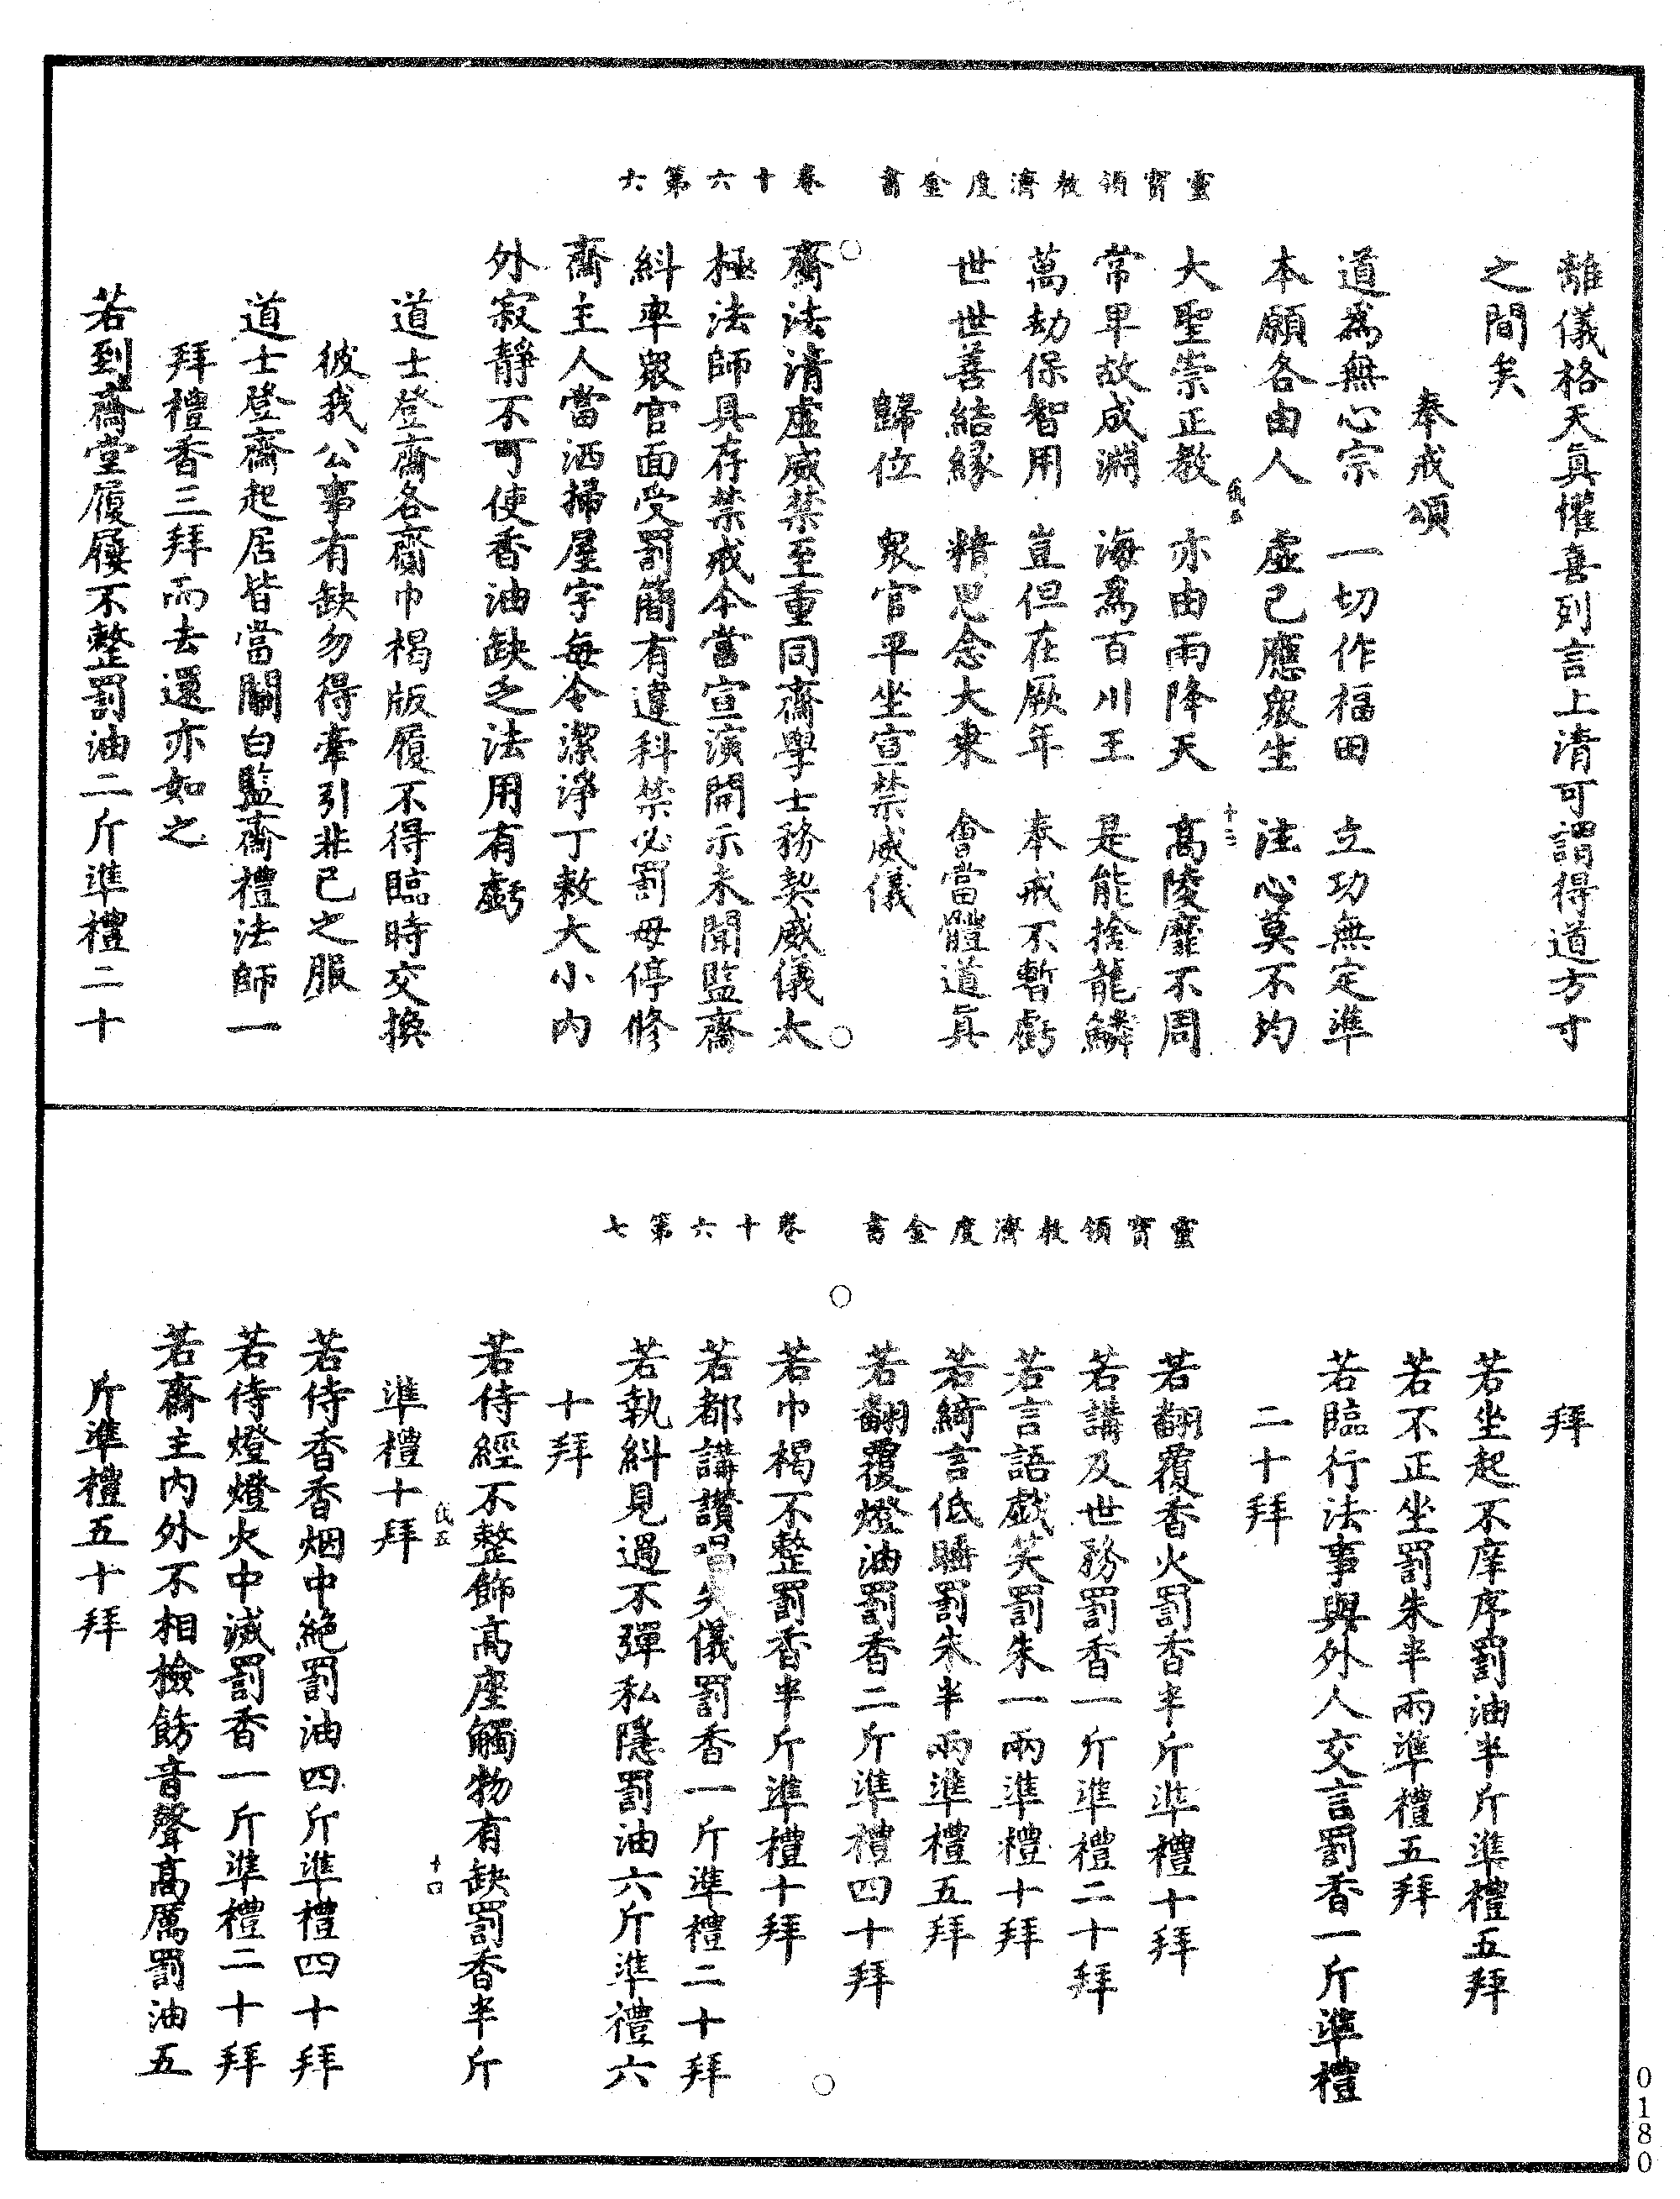 靈寶領教濟度金書　卷十六第六
離儀格天真懽喜列言上清可謂得道方寸
之間矣
奉戒頌
道為無心宗　一切作福田　立功無定準
本願各由人　虛己應眾生　注心莫不均
大聖崇正教　亦由雨降天　高陵靡不周
十三
常卑故成淵　海為百川王　是能捨龍鱗
萬劫保智用　豈但在厥年　奉戒不暫虧
世世善結緣　精思念大乘　會當體道真
歸位　眾官平坐宣禁威儀
齋法清虛威禁至重同齋學士務契威儀太
極法師具存禁戒今當宣演開示未聞監齋
糾率眾官面受罰簡有違科禁必罰毋停修
齋主人當洒掃屋宇每令潔淨丁敕大小內
外寂靜不可使香油缺乏法用有虧
道士登齋各齎巾褐版履不得臨時交換
彼我公事有缺勿得牽引非己之服
道士登齋起居皆當關白監齋禮法師一
拜禮香三拜而去還亦如之
若到齋堂履屨不整罰油二斤準禮二十
靈寶領教濟度金書　卷十六第七
拜
若坐起不庠序罰油半斤準禮五拜
若不正坐罰朱半兩準禮五拜
若臨行法事與外人交言罰香一斤準禮
二十拜
若翻覆香火罰香半斤準禮十拜
若講及世務罰香一斤準禮二十拜
若言語戲笑罰朱一兩準禮十拜
若綺言低睡罰朱半兩準禮五拜
若翻覆燈油罰香二斤準禮四十拜
若巾褐不整罰香半斤準禮十拜
若都講讚唱失儀罰香一斤準禮二十拜
若執糾見過不彈私隱罰油六斤準禮六
十拜
若侍經不整飾高座觸物有缺罰香半斤
十四
準禮十拜
若侍香香烟中絕罰油四斤準禮四十拜
若侍燈燈火中滅罰香一斤準禮二十拜
若齋主內外不相檢飭音聲高厲罰油五
斤準禮五十拜
0180